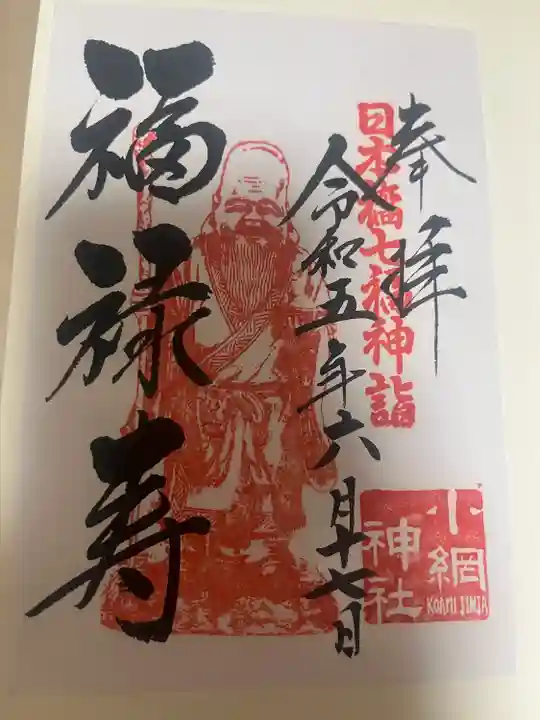 奉拝
日本橋七福神詣
令和五年六月十七日
福禄寿
小網
神社
KOAMI JINJA